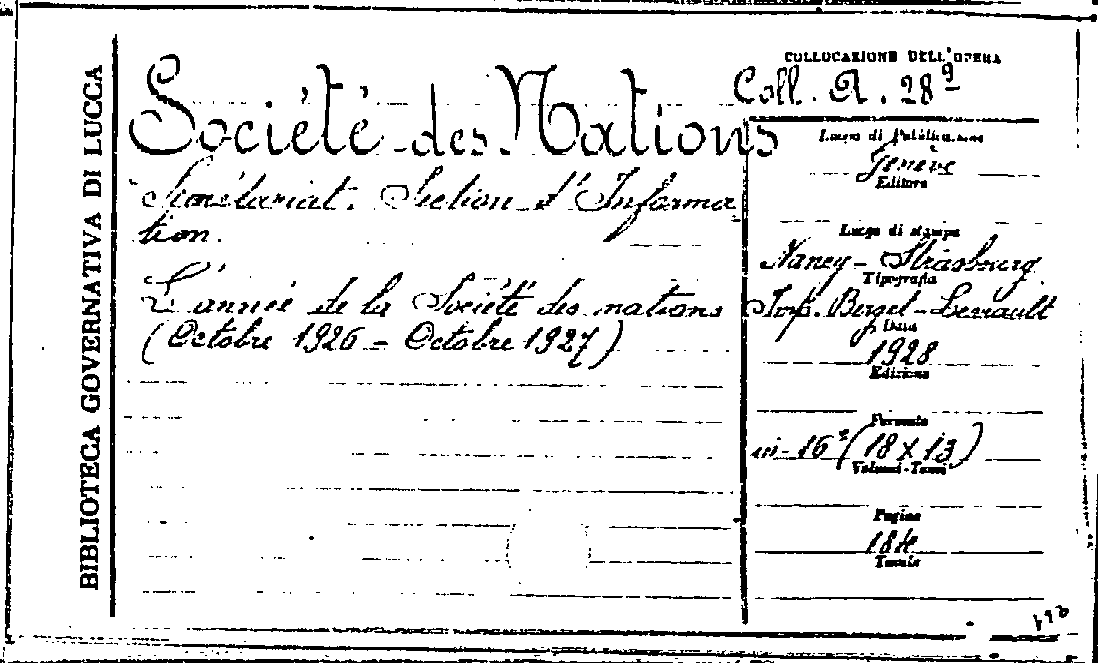 BIBLIOTECA GOVERNATIVA DI LUCCA
Société des Nations
Secrétariat. Section d'Informa
tion.
L'année de la Société des nations
(Octobre 1926 - Octobre 1927)
COLLOCAZIONE DELL'OPERA
Coll. A. 28 9
Luogo di Pubblicazione
Genève
Editore
Luogo di stampa
Nancy - Strasbourg
Tipografia
Imp. Berget-Levrault
Data
1928
Edizione
Formato
in-16° (18 x 13)
Volumi-Tomi
Pagine
184
Tavole